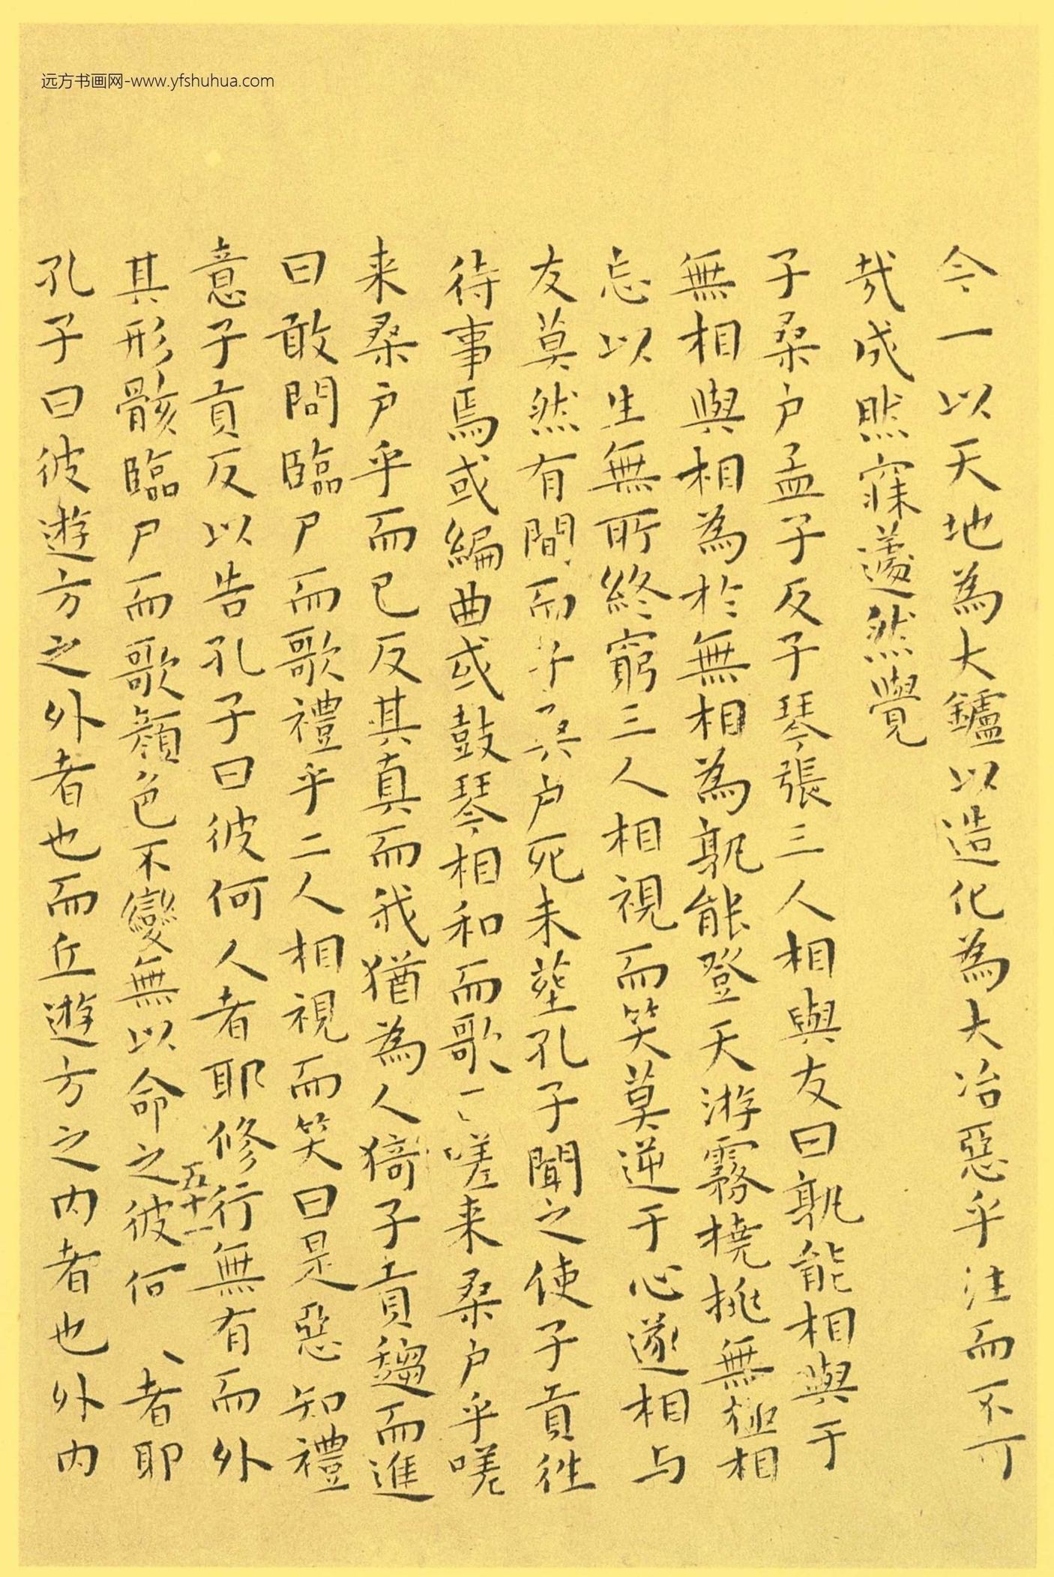 远方书画网-www.yfshuhua.com
今一以天地為大鑪以造化為大冶惡乎注而不可
哉成然寐蘧然覺
子桑户孟子反子琴張三人相與友曰孰能相與于
無相與相為於無相為孰能登天游霧撓挑無極相
忘以生無所終窮三人相視而笑莫逆于心遂相与
友莫然有間而子桑户死未塟孔子聞之使子貢往
待事焉或編曲或鼓琴相和而歌曰嗟来桑户乎嗟
来桑户乎而已反其真而我猶為人猗子貢趨而進
曰敢問臨尸而歌禮乎二人相視而笑曰是惡知禮
意子貢反以告孔子曰彼何人者耶修行無有而外
五十一
其形骸臨尸而歌顔色不變無以命之彼何人者耶
孔子曰彼遊方之外者也而丘遊方之内者也外内